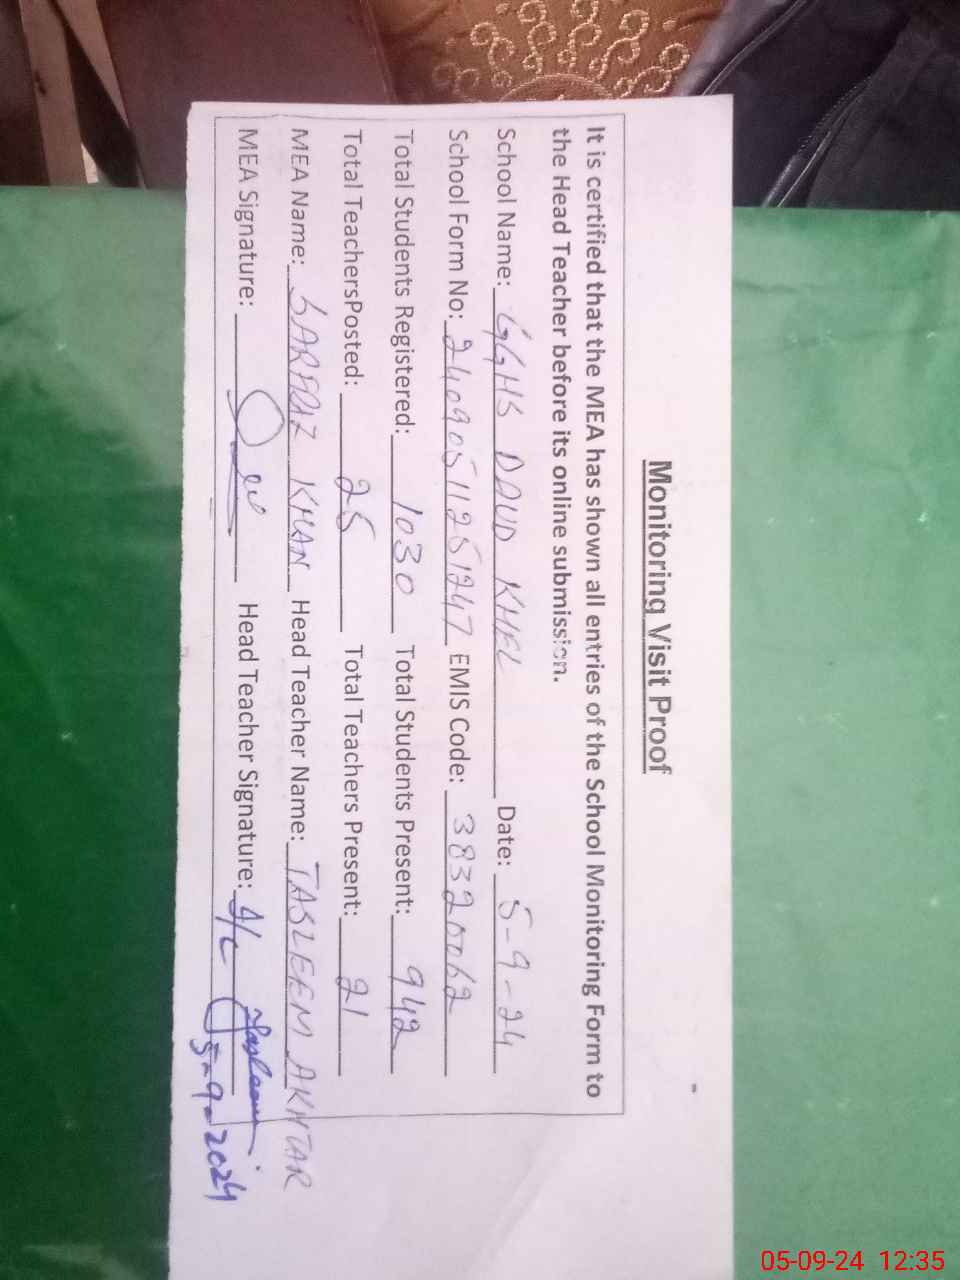 Monitoring Visit Proof
It is certified that the MEA has shown all entries of the School Monitoring Form to
the Head Teacher before its online submission.
School Name: GGHS DAUD KHEL Date: 5-9-24
School Form No: 24090511251247 EMIS Code: 38320062
Total Students Registered: 1030 Total Students Present: 942
Total TeachersPosted: 25 Total Teachers Present: 21
MEA Name: SARFRAZ KHAN Head Teacher Name: TASLEEM AKHTAR
MEA Signature: Head Teacher Signature: I/C Tasleem
5-9-2024
05-09-24 12:35